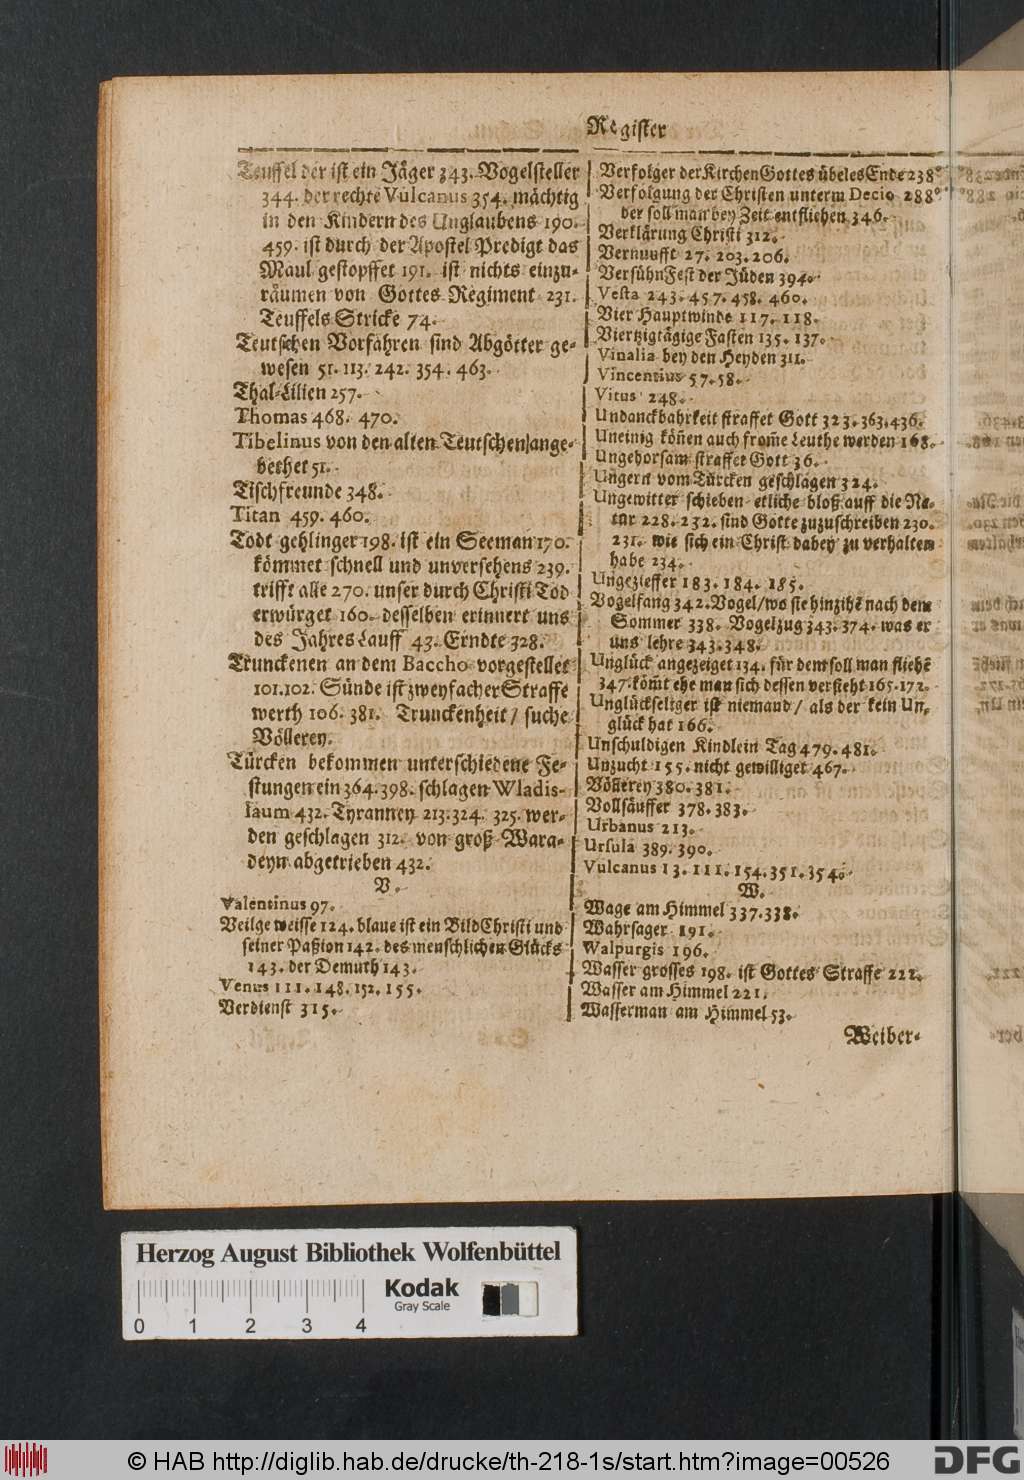 Register
Teuffel der ist ein Jäger 343. Vogelsteller
344. der rechte Vulcanus 354. mächtig
in den Kindern des Unglaubens 190.
459. ist durch der Apostel Predigt das
Maul gestopffet 191. ist nichts einzu-
räumen von Gottes Regiment 231.
Teuffels Stricke 74.
Teutschen Vorfahren sind Abgötter ge-
wesen 51. 113. 242. 354. 463.
Thal-Lilien 257.
Thomas 468. 470.
Tibelinus von den alten Teutschen/ange-
bethet 51.
Tischfreunde 348.
Titan 459. 460.
Todt gehlinger 198. ist ein Seeman 170.
kömmet schnell und unversehens 239.
trifft alle 270. unser durch Christi Tod
erwürget 160. desselben erinnert uns
des Jahres Lauff 43. Erndte 328.
Trunckenen an dem Baccho vorgestellet
101.102. Sünde ist zweyfacher Straffe
werth 106. 381. Trunckenheit/ suche
Völlerey.
Türcken bekommen unterschiedene Fe-
stungen ein 364. 398. schlagen Wladis-
laum 432. Tyranney 213. 324. 325. wer-
den geschlagen 312. von groß-Wara-
deyn abgetrieben 432.
V.
Valentinus 97.
Veilge weisse 124. blaue ist ein Bild Christi und
seiner Paßion 142. des menschlichen Glücks
143. der Demuth 143.
Venus 111. 148. 152. 155.
Verdienst 315.
Verfolger der Kirchen Gottes übeles Ende 238
Verfolgung der Christen unterm Decio 288.
der soll man bey Zeit entfliehen 346.
Verklärung Christi 312.
Vernunfft 27. 203. 206.
VersühnFest der Jüden 394.
Vesta 243. 457. 458. 460.
Vier Hauptwinde 117. 118.
Viertzigtägige Fasten 135. 137.
Vinalia bey den Heyden 311.
Vincentius 57. 58.
Vitus 248.
Undanckbahrkeit straffet Gott 323. 363. 436.
Uneinig köñen auch from̃e Leuthe werden 168.
Ungehorsam straffet Gott 36.
Ungern vom Türcken geschlagen 324.
Ungewitter schieben etliche bloß auff die Na-
tur 228. 232. sind Gotte zuzuschreiben 230.
231. wie sich ein Christ dabey zu verhalten
habe 234.
Ungezieffer 183. 184. 185.
Vogelfang 342. Vogel/wo sie hinzihẽ nach dem
Sommer 338. Vogelzug 343. 374. was er
uns lehre 343. 348.
Unglück angezeiget 134. für dem soll man fliehẽ
347. köm̃t ehe man sich dessen versieht 165. 172.
Unglückseliger ist niemand/ als der kein Un-
glück hat 166.
Unschuldigen Kindlein Tag 479. 481.
Unzucht 155. nicht gewilliget 467.
Völlerey 380. 381.
Vollsäuffer 378. 383.
Urbanus 213.
Ursula 389. 390.
Vulcanus 13. 111. 154. 351. 354.
W.
Wage am Himmel 337. 338.
Wahrsager 191.
Walpurgis 196.
Wasser grosses 198. ist Gottes Straffe 222.
Wasser am Himmel 221.
Wasserman am Himmel 53.
Weiber-
Herzog August Bibliothek Wolfenbüttel
Kodak
Gray Scale
0 1 2 3 4
© HAB http://diglib.hab.de/drucke/th-218-1s/start.htm?image=00526
DFG